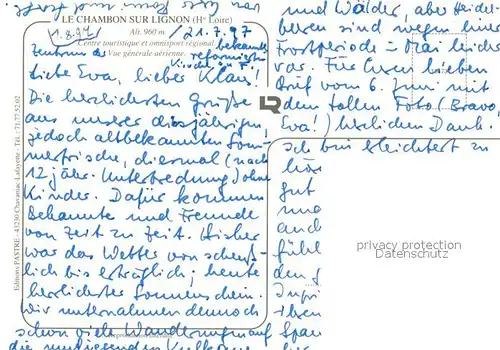 LE CHAMBON SUR LIGNON (Hte Loire)
Alt. 960 m
1.8.97
/21.7.97
Centre touristique et omnisport régional
Vue générale aérienne.
Zentrum der
bekannte
reformierte
Kirche in F.
Liebe Eva, lieber Klaus!
Die herzlichsten Grüße
aus unserer diesjährigen,
jedoch altbekannten Som-
merfrische, diesmal (nach
12 jähr. Unterbrechung) ohne
Kinder. Dafür kommen
Bekannte und Freunde
von Zeit zu Zeit. Bisher
war das Wetter von scheuß-
lich bis erträglich; heute
herrlichster Sonnenschein.
Wir unternahmen dennoch
schon viele Wanderungen auf
die umliegenden
und Wälder, aber Heidel-
beeren sind wegen einer
Frostperiode im Mai leider
rar. Für Euren lieben
Brief vom 6. Juni mit
dem tollen Foto (Bravo,
Eva!) herzlichen Dank.
Ich bin erleichtert zu
gut
und
den
Editions PASTRE - 43230 Chavaniac-Lafayette - Tél. : 71.77.52.02
privacy protection
Datenschutz